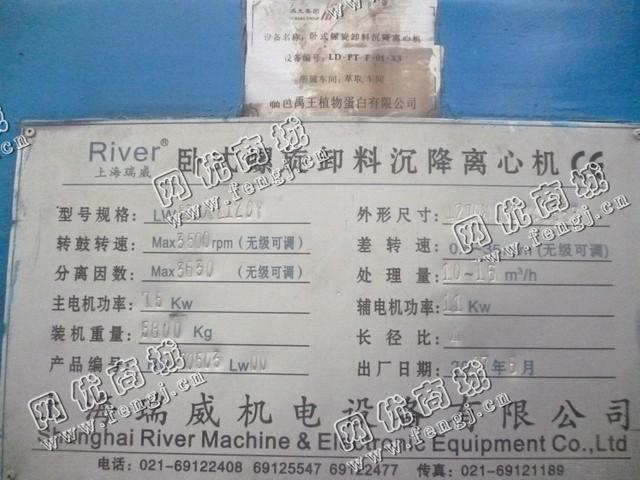 禹王集团
设备名称：卧式螺旋卸料沉降离心机
设备编号：LD-PT-F-01-X3
所属车间：萃取车间
临邑禹王植物蛋白有限公司
River® 卧式螺旋卸料沉降离心机 CE
上海瑞威
型号规格： 外形尺寸：
转鼓转速：Max3500rpm（无级可调） 差转速：（无级可调）
分离因数：Max3630（无级可调） 处理量：10~15 m³/h
主电机功率：15 Kw 辅电机功率：11 Kw
装机重量：5800 Kg 长径比：4
产品编号： 出厂日期：
上海瑞威机电设备有限公司
Shanghai River Machine & Electronic Equipment Co.,Ltd
电话：021-69122408 69125547 69122477 传真：021-69121189
网优商城
www.fengj.cn
网优商城
www.fengj.cn
网优商城
www.fengj.cn
网优商城
www.fengj.cn